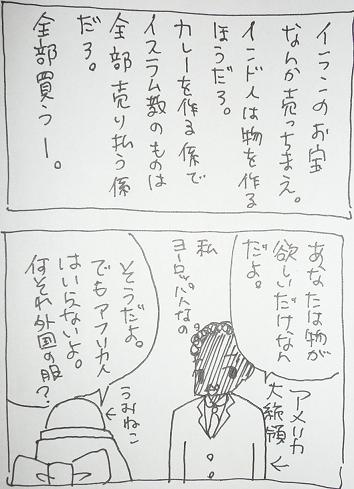 イランのお宝
なんか売っちまえ。
インド人は物を作る
ほうだろ。
カレーを作る係で
イスラム教のものは
全部売り払う係
だろ。
全部買うー。
あなたは物が
欲しいだけなん
だよ。
アメリカ
大統領
私
ヨーロッパ人なの
そうだよ。
でもアフリカ人
はいらないよ。
何それ外国の服?
うみねこ